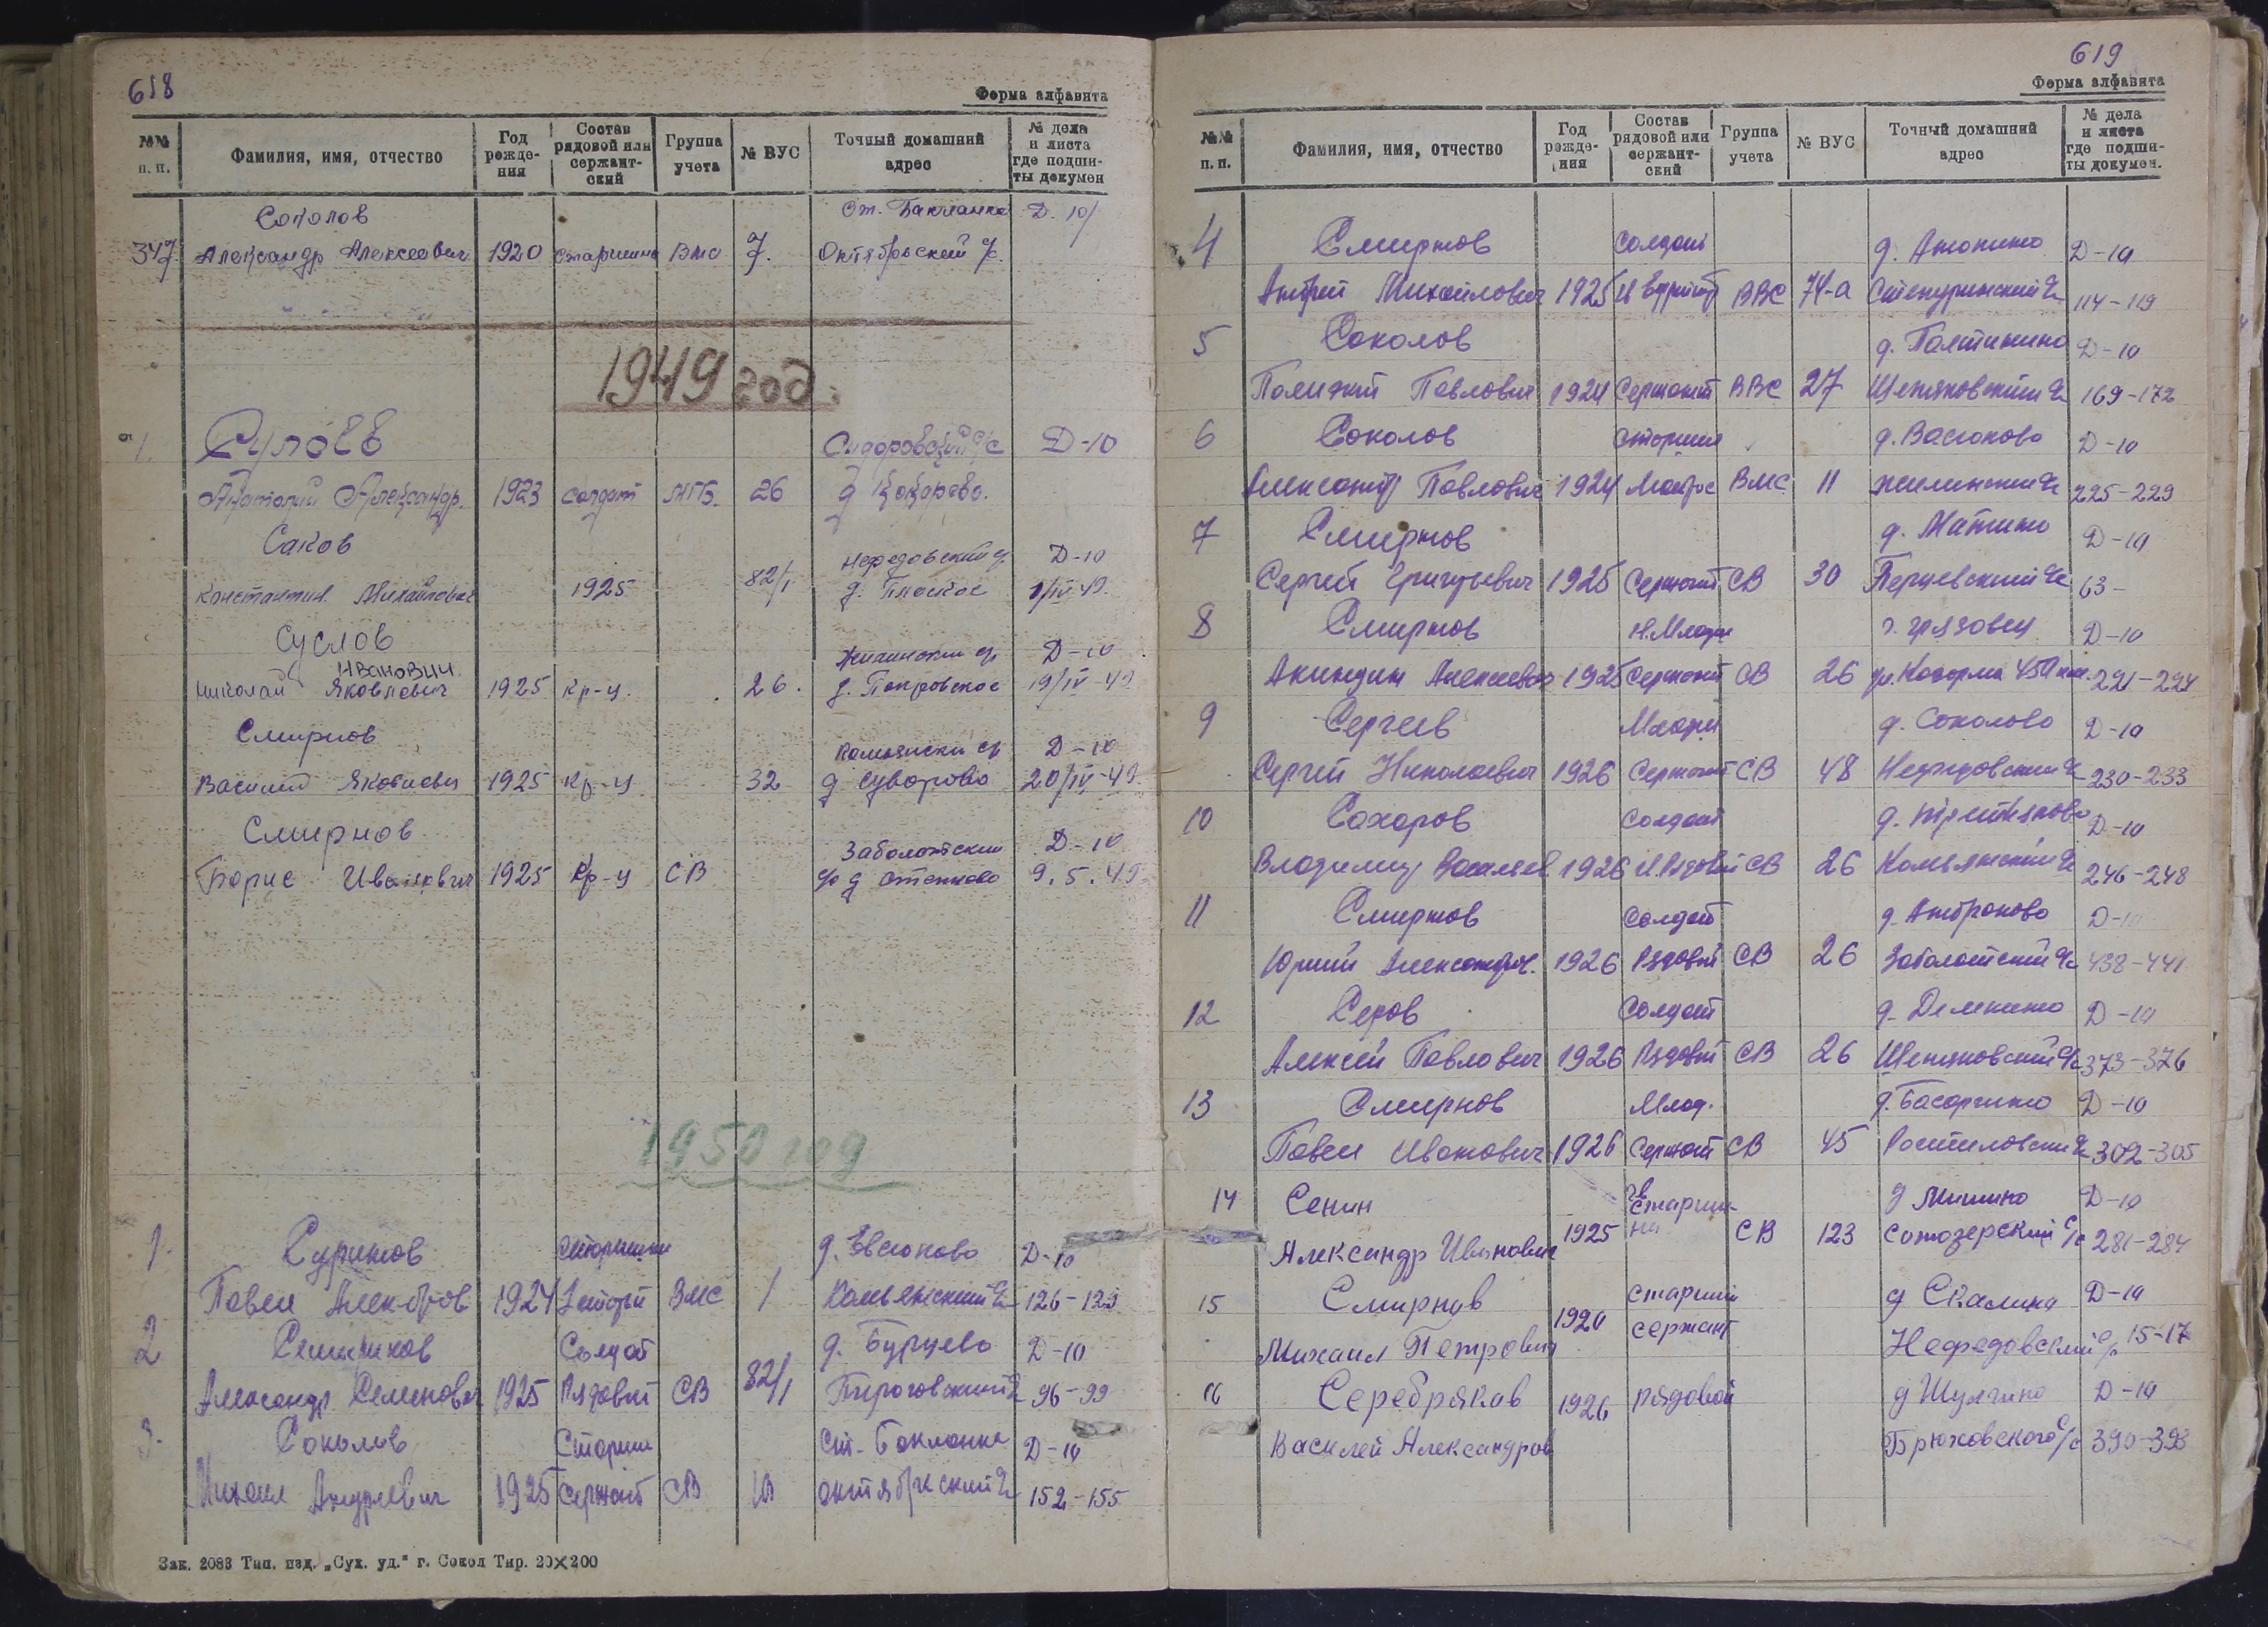 618
Форма алфавита
№№ п. п.
Фамилия, имя, отчество
Год рожде-
ния
Состав
рядовой или
сержант-
ский
Группа
учета
№ ВУС
Точный домашний
адрес
№ дела
и листа
где подши-
ты докумен
Соколов ст. Бакланка Д. 10/
347. Александр Алексеевич 1920 старшина Вмс 7. Октябрьский с/с.
1949 год.
1. Сулоев Сидоровский с/с Д-10
Анатолий Александр. 1923 солдат МГБ. 26 д
Саков Нефедовский с/ Д-10
Константин Михайлович 1925 82/1 д. Плоское 1/IV-49.
Суслов Жилинский с/ Д-10
Иванович
Николай Яковлевич 1925 кр-ц. 26. д. Покровское 19/IV-49
Смирнов Комьянский с/ Д-10
Василий Яковлевич 1925 кр-ц 32 д Суворово 20/IV-49.
Смирнов Заболотский Д-10
Борис Иванович 1925 кр-ц СВ с/с д Степково 9.5.49
1950 год
1. старшина д. Евсюково Д-10
Павел Алек-дров 1924 ВМС 1 Комьянский с/с 126-129
2 Солдат д. Бурцево Д-10
Александр Семенович 1925 Рядовой СВ 82/1 Пироговский с/с 96-99
3. Соколов Старши ст. Бакланка Д-10
Михаил Андреевич 1925 Сержант СВ 10 октябрьский с/с 152-155
Зак. 2083 Тип. изд. „Сух. уд.“ г. Сокол Тир. 20×200
619
Форма алфавита
№№
п. п.
Фамилия, имя, отчество
Год
рожде-
ния
Состав
рядовой или
сержант-
ский
Группа
учета
№ ВУС
Точный домашний
адрес
№ дела
и листа
где подши-
ты докумен.
4 Смирнов Солдат д. Анокино Д-10
Андрей Михайлович 1925 ВВС 74-а с/с 114-119
5 Соколов д. Полтинино Д-10
Павлович 1924 Сержант ВВС 27 Щепяковский с/с 169-172
6 Соколов старший д. Васюково Д-10
Александр Павлович 1924 Матрос ВМС 11 жилинский с/с 225-229
7 Смирнов д. Матино Д-10
Сергей Григорьевич 1925 Сержант СВ 30 Перцевский с/с 63-
8 Смирнов г. Грязовец Д-10
Акиндин Алексеевич 1925 Сержант СВ 26 казарма 450 км. 221-224
9 Сергеев Младш д. Соколово Д-10
Сергей Николаевич 1926 Сержант СВ 48 Нефедовский с/с 230-233
10 Сахаров Солдат д. Третьяково Д-10
Владимир Васильев. 1926 СВ 26 Комьянский с/с 246-248
11 Смирнов Солдат д. Антроково Д-10
Юрий Александрович. 1926 Рядовой СВ 26 Заболотский с/с 438-441
12 Серов Солдат д. Демкино Д-10
Алексей Павлович 1926 Рядовой СВ 26 Щепяковский с/с 373-376
13 Смирнов Млад. д. Басаргино Д-10
Павел Иванович 1926 Сержант СВ 45 Ростиловский с/с 302-305
14 Сенин гв старши- д Мишино Д-10
Александр Иванович 1925 на СВ 123 Сотозерский с/с 281-284
15 Смирнов старший д Скалина Д-10
Михаил Петрович 1920 сержант Нефедовский с/с 15-17
16 Серебряков 1926 рядовой д Шулгино Д-10
Василей Александров Брюховского с/с 390-393